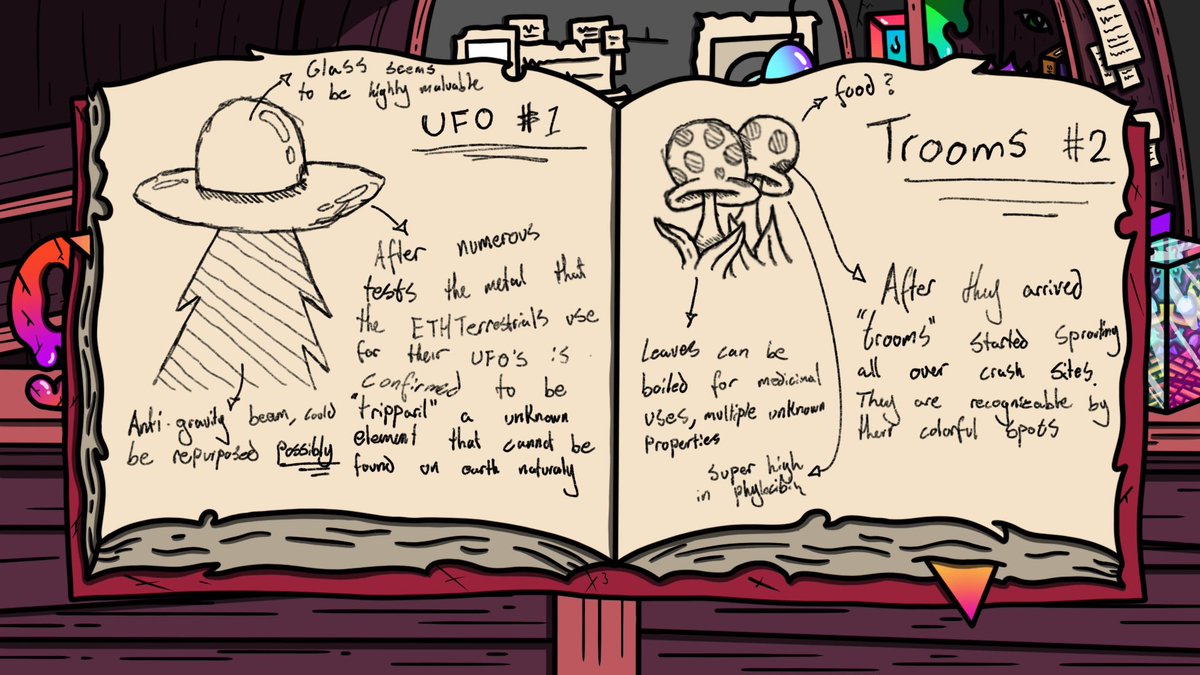 Glass seems
to be highly maluable
UFO #1
After numerous
tests the metal that
the ETHTerrestrials use
for their UFO's is
confirmed to be
"tripparil" a unknown
element that cannot be
found on earth naturaly
Anti-gravity beam, could
be repurposed possibly
food?
Trooms #2
After they arrived
"trooms" started sprouting
all over crash sites.
They are recognizable by
their colorful spots
Leaves can be
boiled for medicinal
uses, multiple unknown
properties
super high
in
x3